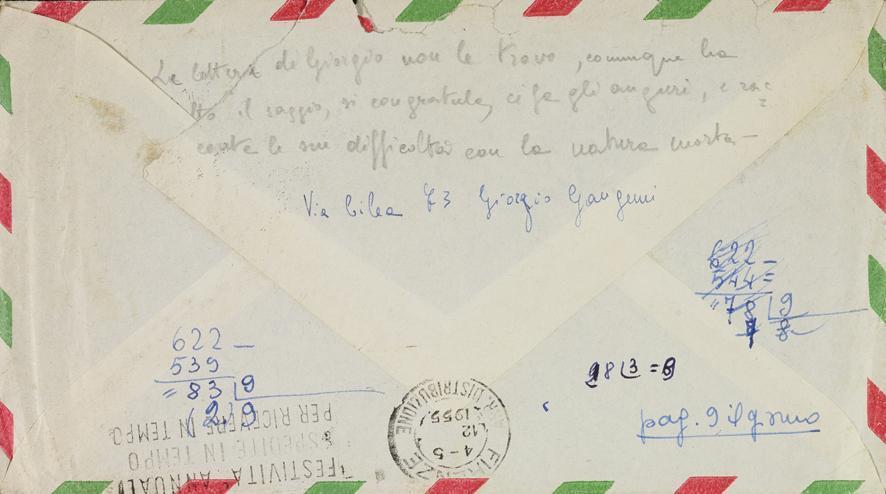 La lettera di Giorgio non la trovo, comunque ha
il saggio, si congratula, ci fa gli auguri, e rac=
conta le sue difficoltà con la natura morta —
Via Cilea 73 Giorgio Gangemi
622 —
544 =
" 78 | 9
8
622 —
539
= 83 | 9
(2) 9
18 | 3 = 9
pag. 9 il giorno
FIRENZE
4-5
12
1955
AR. DISTRIBUZIONE
FESTIVITÀ ANNUALI
SPEDITE IN TEMPO
PER RICEVERE IN TEMPO